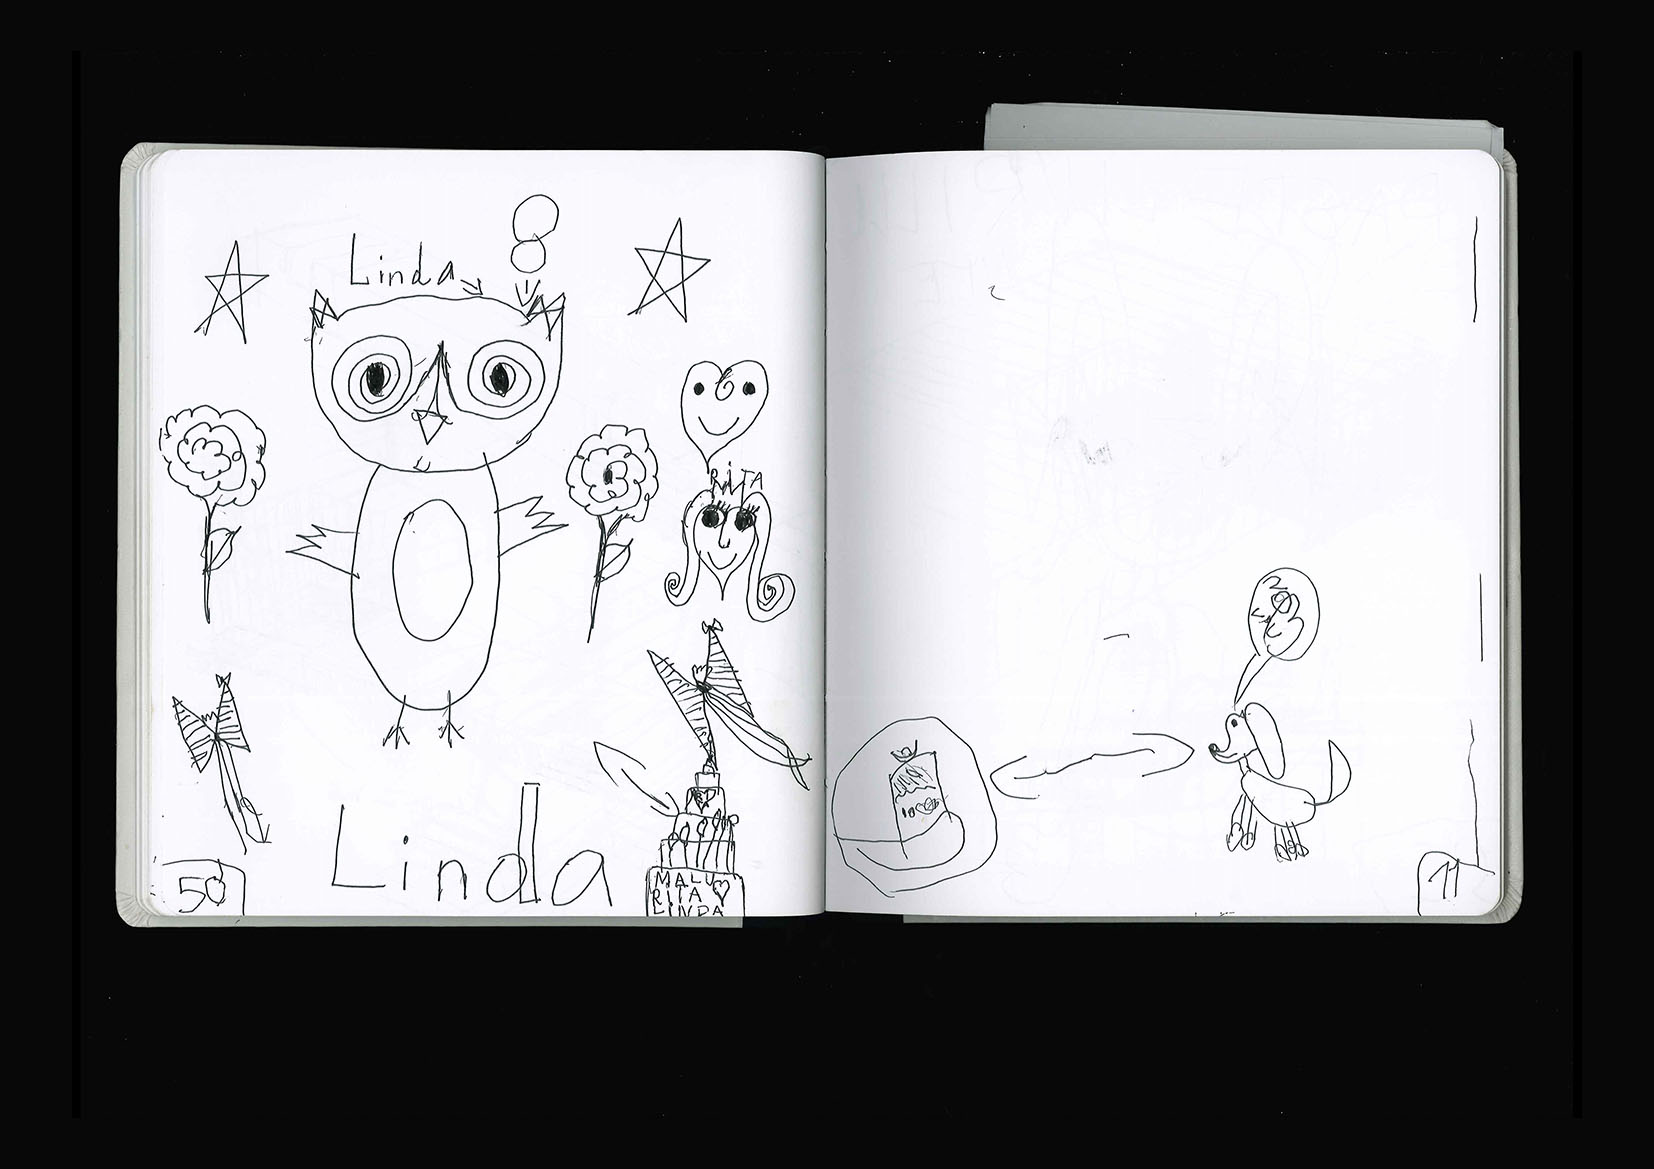 Linda
8
RiTA
Linda
MALU
RITA
LINDA
50
11